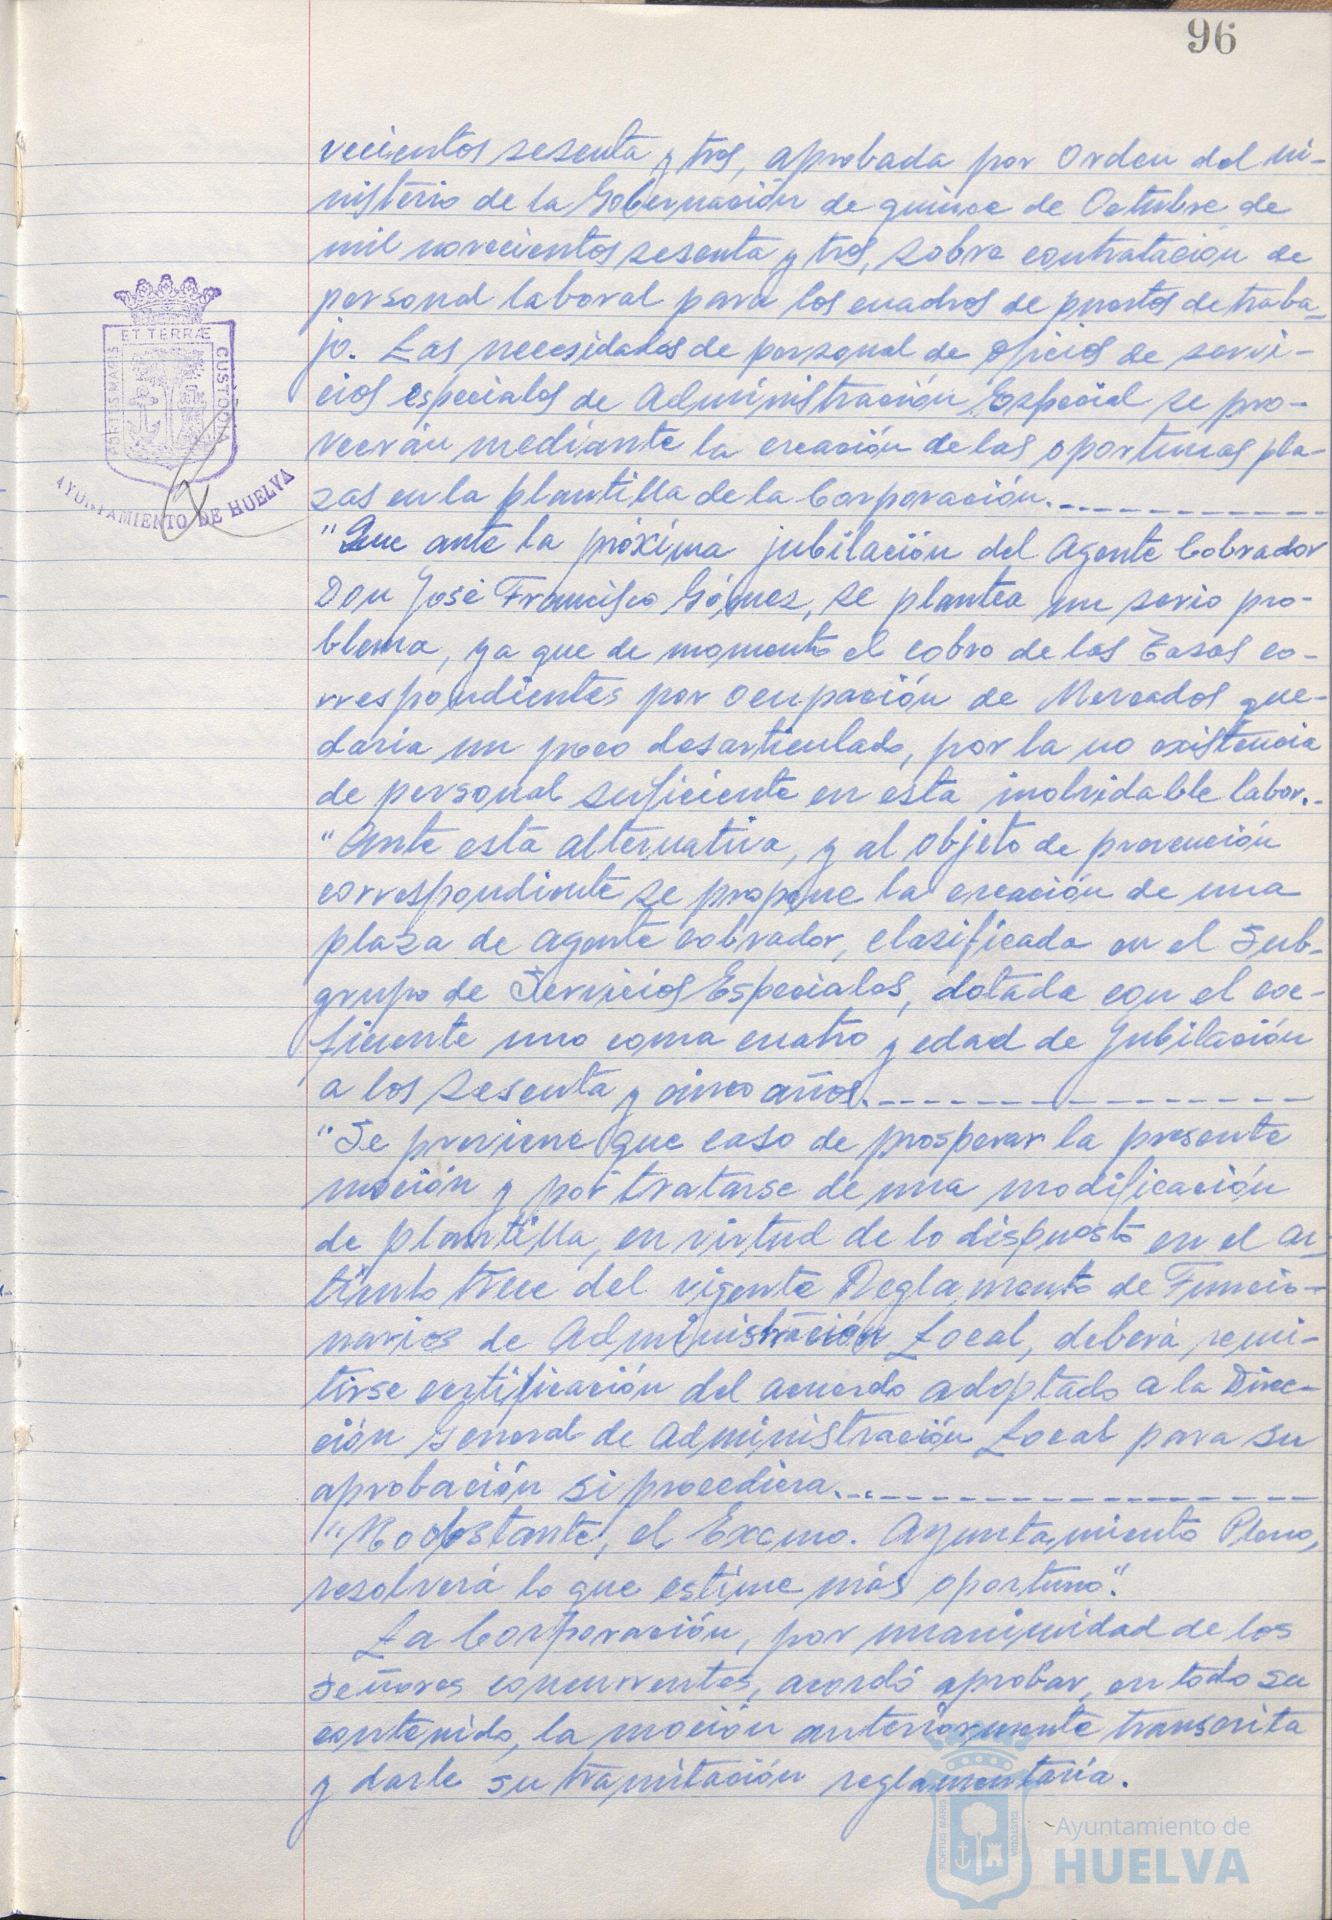 96
vecientos sesenta y tres, aprobada por Orden del Mi-
nisterio de la Gobernación de quince de Octubre de
mil novecientos sesenta y tres, sobre contratación de
personal laboral para los cuadros de puestos de traba-
jo. Las necesidades de personal de oficios de servi-
cios especiales de Administración Especial se pro-
veerán mediante la creación de las oportunas pla-
zas en la plantilla de la Corporación.
"Que ante la próxima jubilación del Agente Cobrador
Don José Francisco Gómez, se plantea un serio pro-
blema, ya que de momento el cobro de las Tasas co-
rrespondientes por ocupación de Mercados que-
daría un poco desarticulado, por la no existencia
de personal suficiente en esta inolvidable labor.-
"Ante esta alternativa, y al objeto de prevención
correspondiente se propone la creación de una
plaza de agente cobrador, clasificada en el Sub-
grupo de Servicios Especiales, dotada con el coe-
ficiente uno coma cuatro y edad de jubilación
a los sesenta y cinco años.
"Se previene que caso de prosperar la presente
moción y por tratarse de una modificación
de plantilla, en virtud de lo dispuesto en el ar-
tículo trece del vigente Reglamento de Funcio-
narios de Administración Local, deberá remi-
tirse certificación del acuerdo adoptado a la Direc-
ción General de Administración Local para su
aprobación si procediera.
"No obstante, el Excmo. Ayuntamiento Pleno,
resolverá lo que estime más oportuno".
La Corporación, por unanimidad de los
señores concurrentes, acordó aprobar, en todo su
contenido, la moción anteriormente transcrita
y darle su tramitación reglamentaria.
PORTUS MARIS ET TERRÆ CUSTODIA
AYUNTAMIENTO DE HUELVA
PORTUS MARIS CUSTODIA
Ayuntamiento de
HUELVA